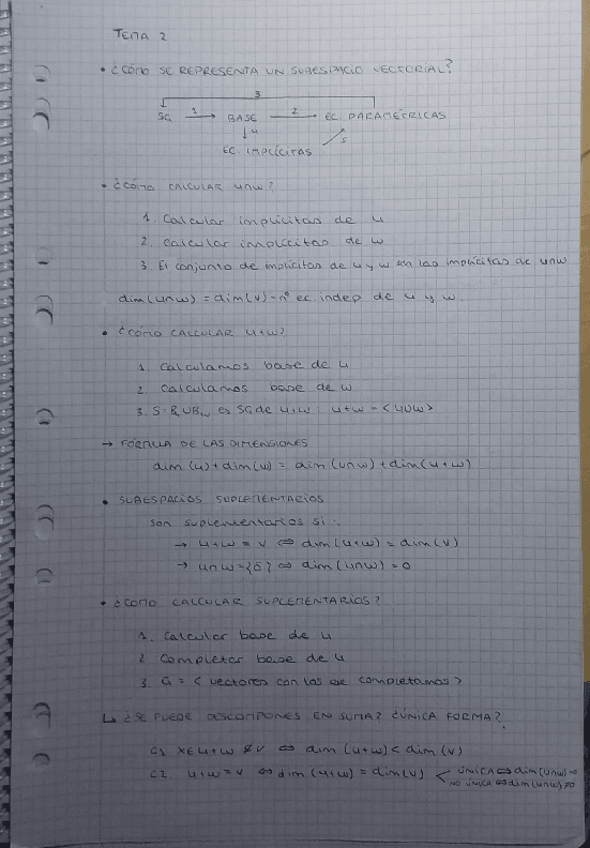 TEMA 2
• ¿CÓMO SE REPRESENTA UN SUBESPACIO VECTORIAL?
3
SG 1→ BASE 2→ EC. PARAMÉTRICAS
↓4 5
EC. IMPLÍCITAS
• ¿CÓMO CALCULAR U∩W?
1. Calcular implícitas de U
2. Calcular implícitas de W
3. El conjunto de implícitas de U y W son las implícitas de U∩W
dim(U∩W) = dim(V) - nº ec. indep de U y W
• ¿CÓMO CALCULAR U+W?
1. Calculamos base de U
2. Calculamos base de W
3. S = BᵤUB_w es SG de U+W U+W = <UUW>
→ FÓRMULA DE LAS DIMENSIONES
dim (U) + dim (W) = dim (U∩W) + dim (U+W)
• SUBESPACIOS SUPLEMENTARIOS
Son suplementarios si:
→ U+W = V ⇔ dim (U+W) = dim(V)
→ U∩W = {0̄} ⇔ dim (U∩W) = 0
• ¿CÓMO CALCULAR SUPLEMENTARIOS?
1. Calcular base de U
2. Completar base de U
3. G = < vectores con los que completamos >
↳ ¿SE PUEDE DESCOMPONES EN SUMA? ¿ÚNICA FORMA?
C1 X∈U+W ≠ V ⇔ dim (U+W) < dim (V)
C2. U+W = V ⇔ dim (U+W) = dim(V) < ÚNICA ⇔ dim(U∩W)=0
NO ÚNICA ⇔ dim(U∩W)≠0